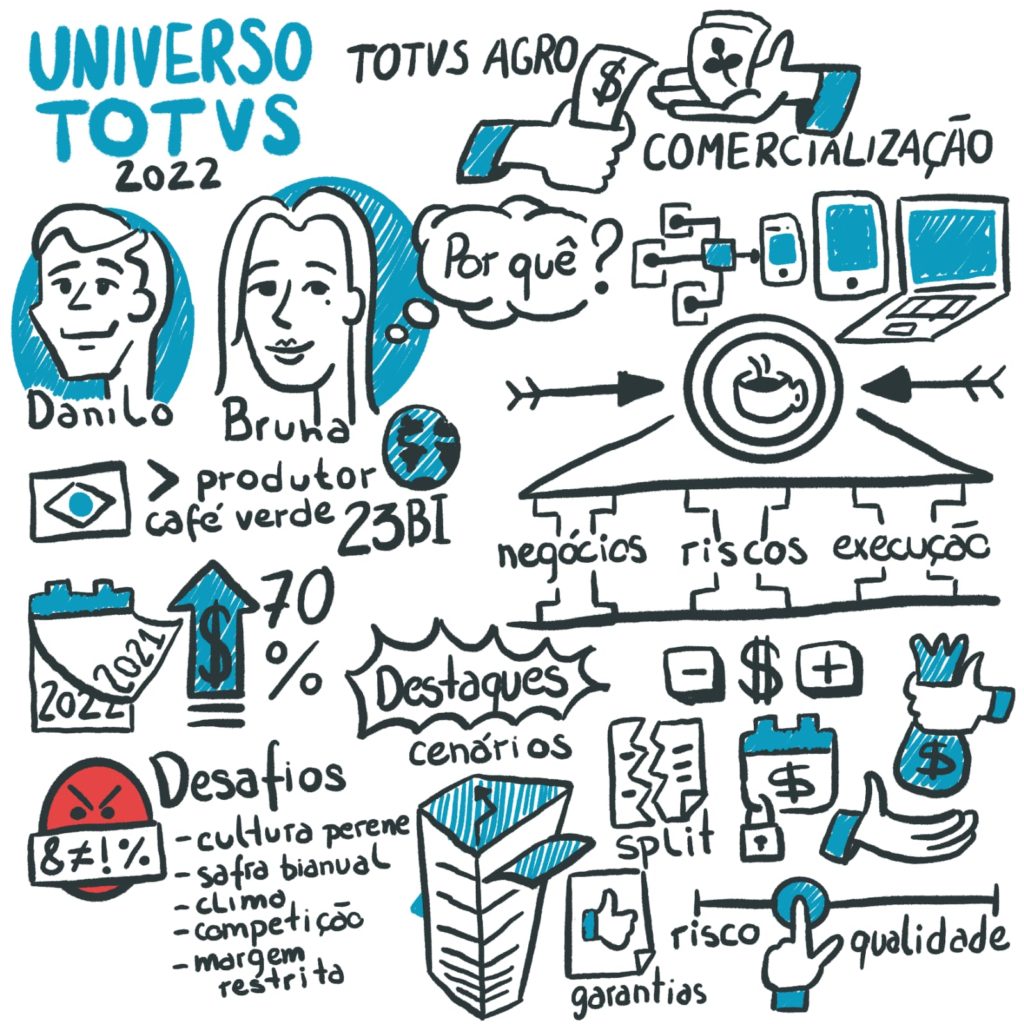 UNIVERSO
TOTVS
2022
TOTVS AGRO
$
COMERCIALIZAÇÃO
Danilo
Bruna
Por quê?
> produtor
café verde 23BI
2021
2022
$
70
%
negócios riscos execução
Destaques
- $ +
$
$
cenários
split
garantias
risco qualidade
Desafios
&≠!%
- cultura perene
- safra bianual
- clima
- competição
- margem
restrita